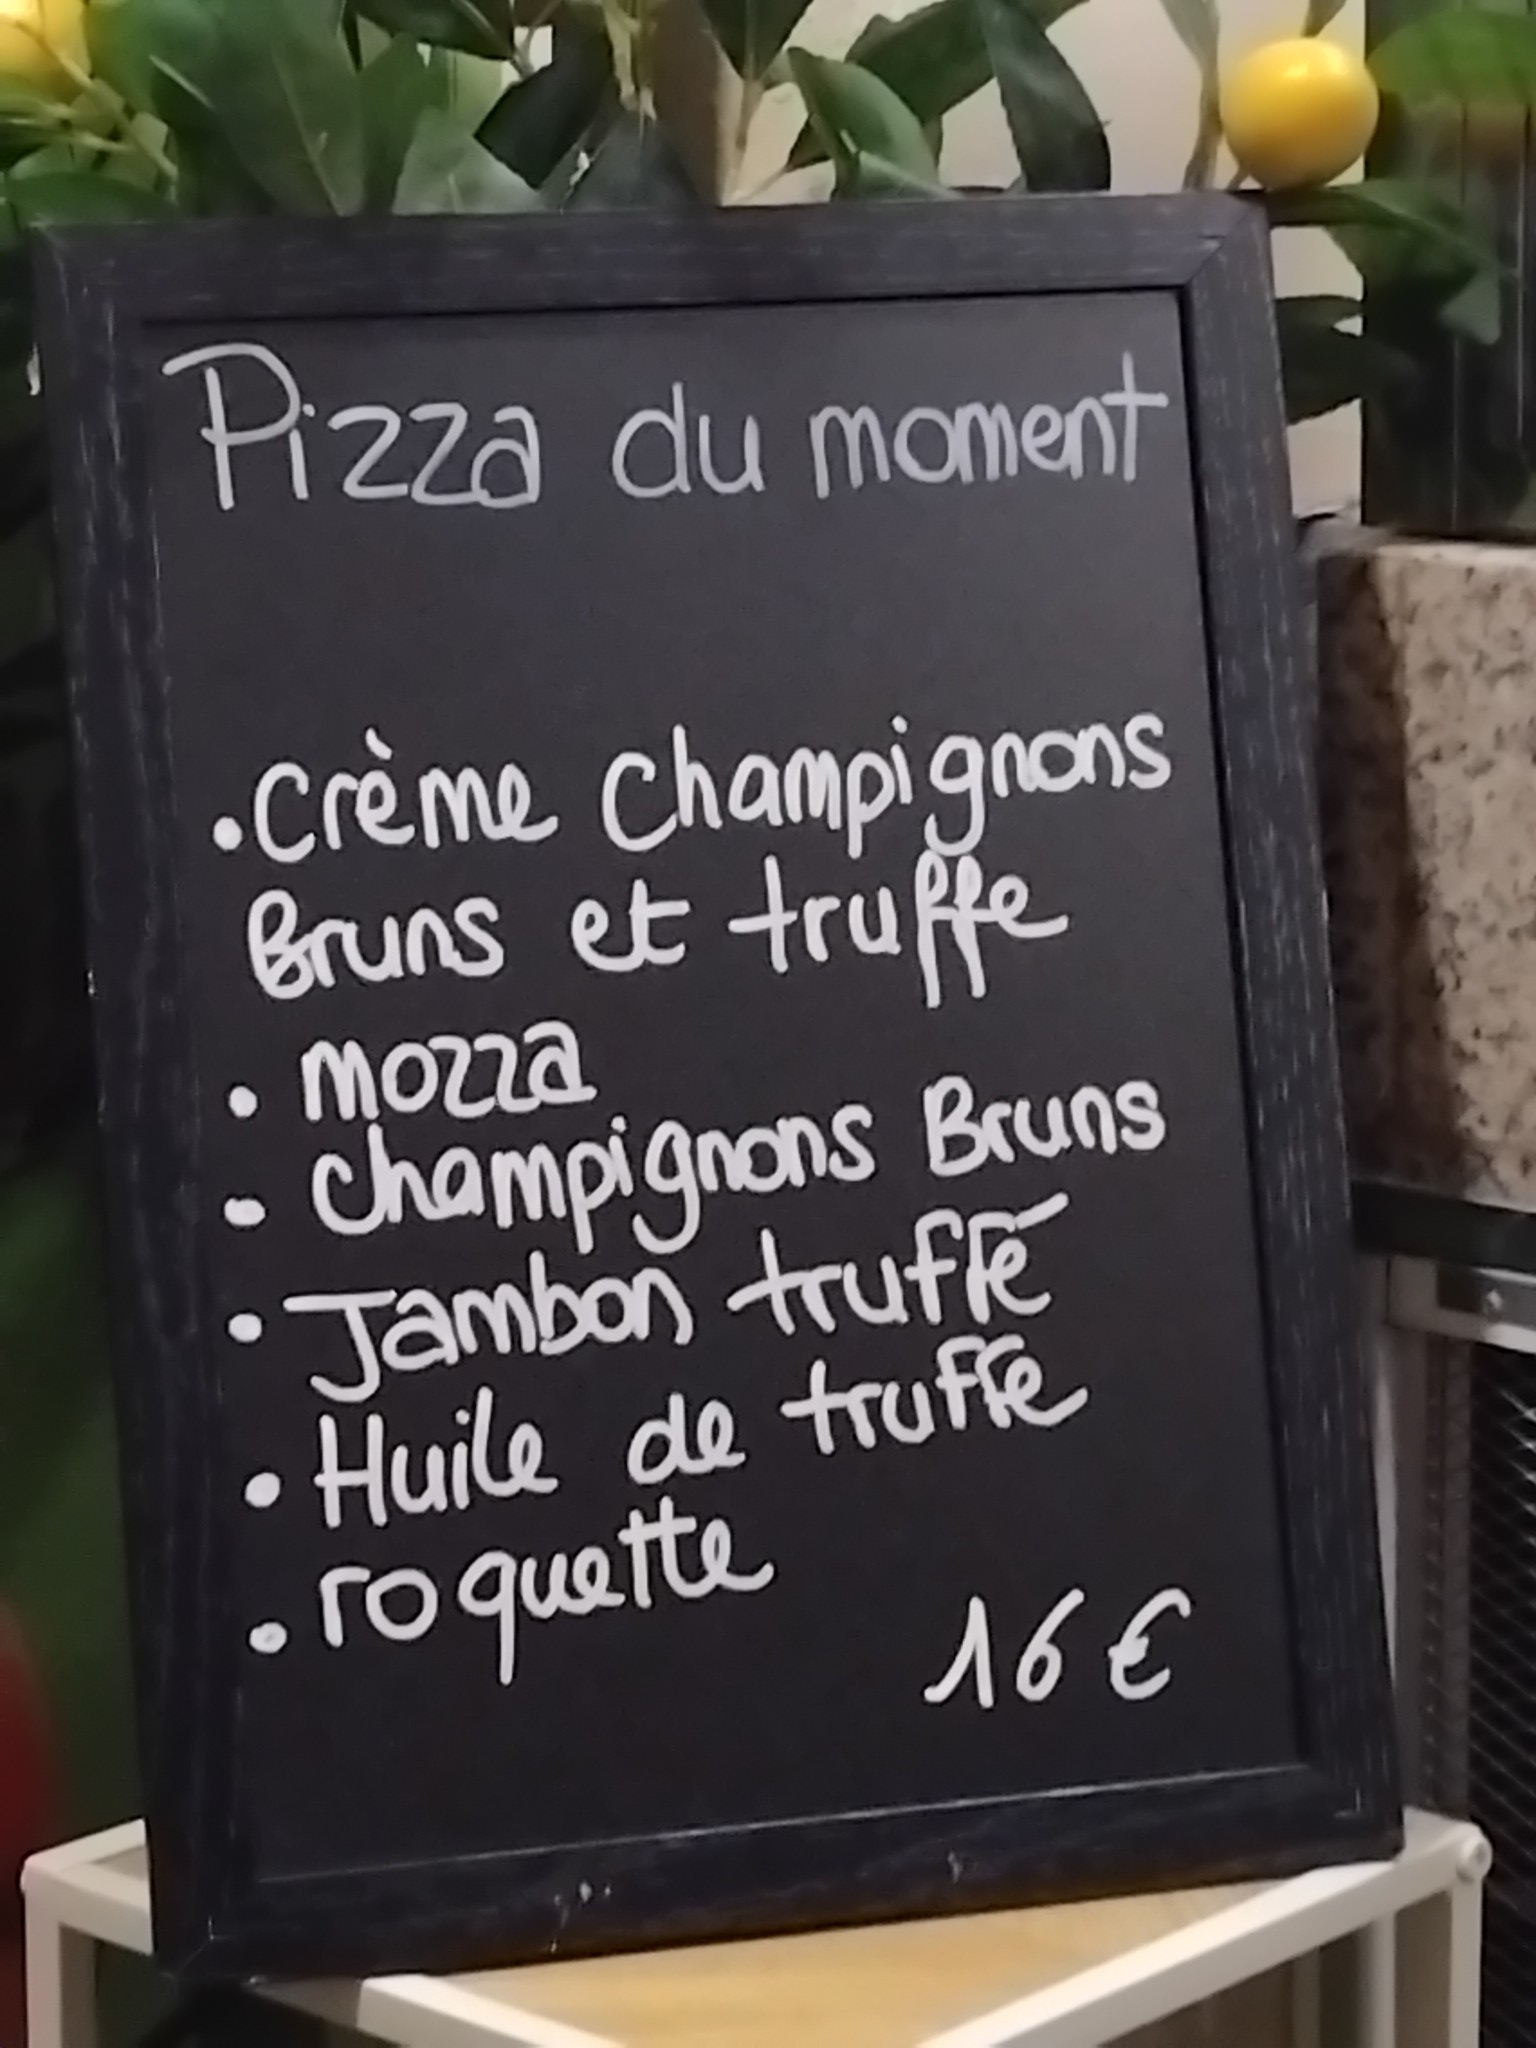 Pizza du moment
• Crème Champignons
Bruns et truffe
• mozza
• Champignons Bruns
• Jambon truffé
• Huile de truffe
• roquette
16 €